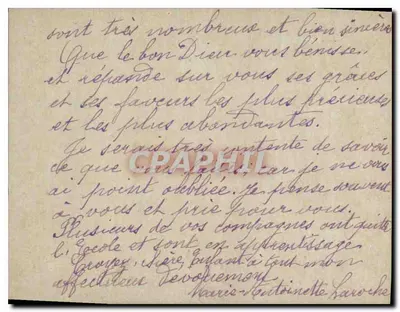 sont très nombreux et bien sincères
Que le bon Dieu vous bénisse
et répande sur vous ses grâces
et ses faveurs les plus précieuses
et les plus abondantes.
Je serais très contente de savoir
ce que vous faites car je ne vous
ai point oubliée. Je pense souvent
à vous et prie pour vous.
Plusieurs de vos compagnes ont quitté
l'École et sont en apprentissage
Croyez, chère Enfant à tout mon
affectueux dévouement
Marie-Antoinette Laroche
CPAPHIL